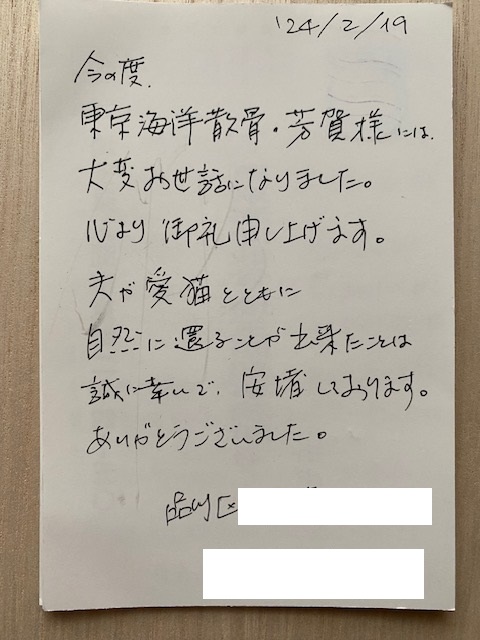 '24/2/19
今の度、
東京海洋散骨・芳賀様には、
大変お世話になりました。
心より御礼申し上げます。
夫が愛猫とともに
自然に還ることが出来たことは
誠に幸いで、安堵しております。
ありがとうございました。
品川区